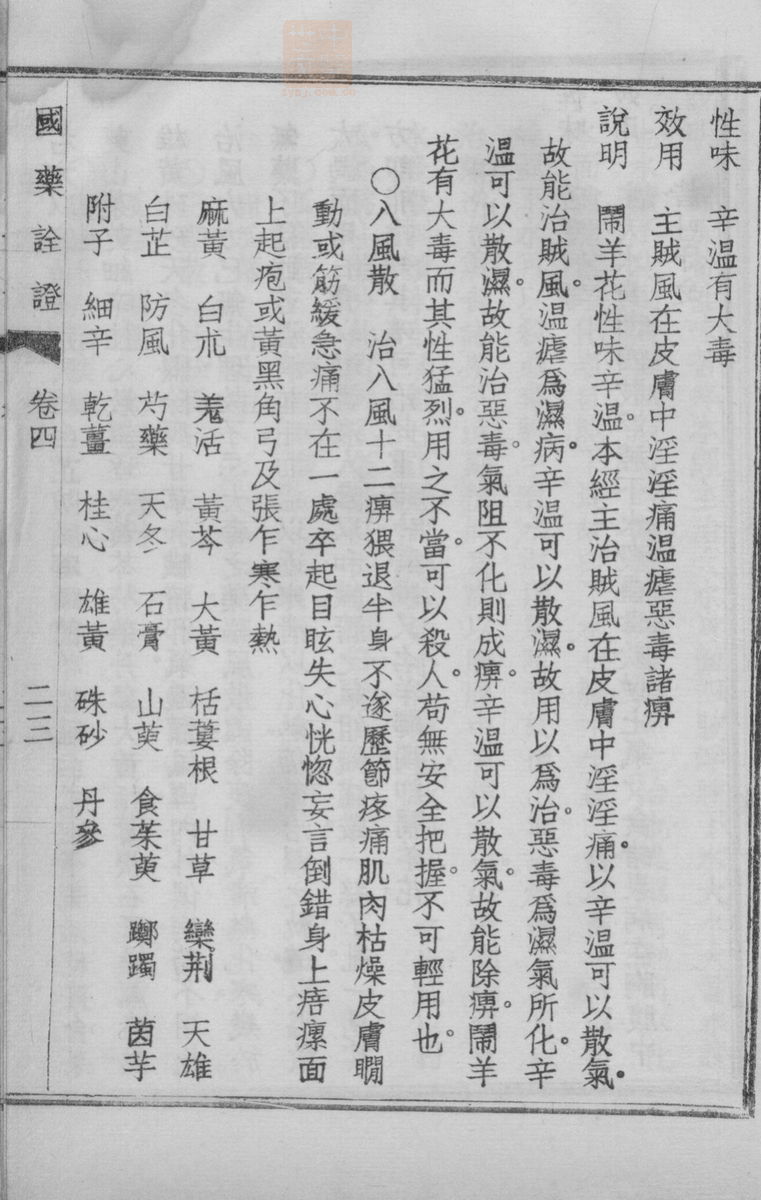 性味　辛温有大毒
效用　主賊風在皮膚中淫淫痛温瘧惡毒諸痹
說明　鬧羊花性味辛温。本經主治賊風在皮膚中淫淫痛。以辛温可以散氣。
故能治賊風。温瘧爲濕病。辛温可以散濕。故用以爲治。惡毒爲濕氣所化。辛
温可以散濕。故能治惡毒。氣阻不化則成痹。辛温可以散氣。故能除痹。鬧羊
花有大毒而其性猛烈。用之不當。可以殺人。苟無安全把握。不可輕用也。
○八風散　治八風十二痹猥退半身不遂歷節疼痛肌肉枯燥皮膚瞤
動或筋緩急痛不在一處卒起目眩失心恍惚妄言倒錯身上㾦瘰面
上起疱或黃黑角弓及張乍寒乍熱
麻黃　白朮　羗活　黃芩　大黃　栝蔞根　甘草　欒荆　天雄
白芷　防風　芍藥　天冬　石膏　山萸　食茱萸　躑躅　茵芋
附子　細辛　乾薑　桂心　雄黃　硃砂　丹參
國藥詮證　卷四　二三